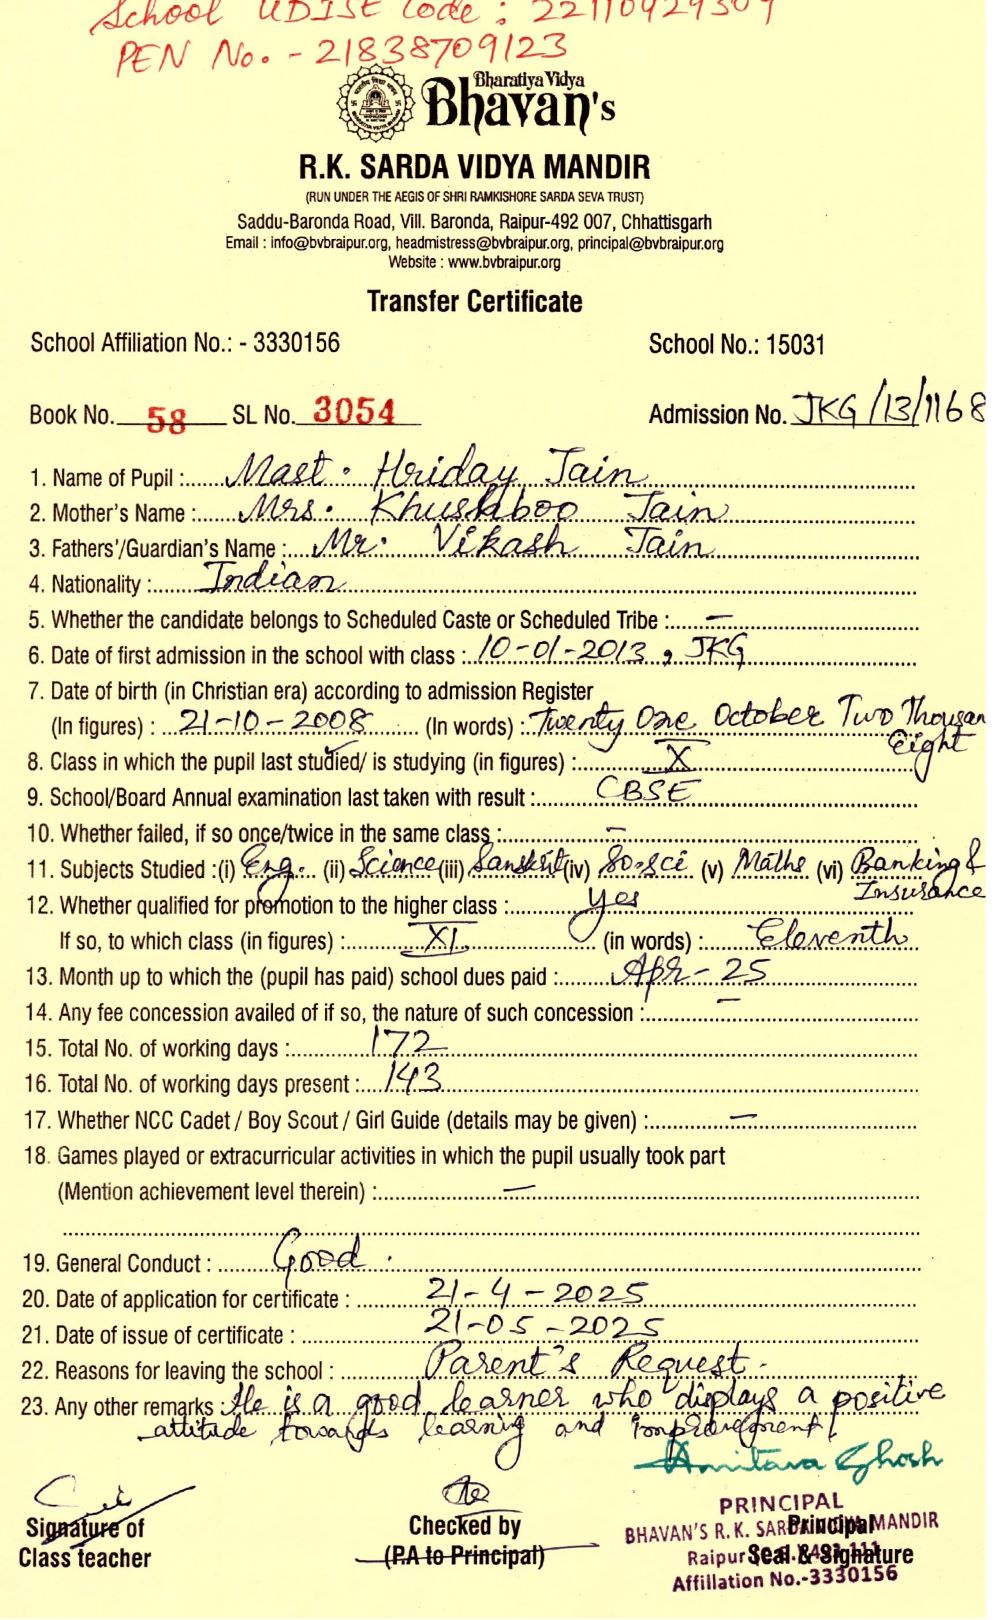 School UDISE Code : 22110929309
PEN No. - 21838709123
Bharatiya Vidya
Bhavan's
R.K. SARDA VIDYA MANDIR
(RUN UNDER THE AEGIS OF SHRI RAMKISHORE SARDA SEVA TRUST)
Saddu-Baronda Road, Vill. Baronda, Raipur-492 007, Chhattisgarh
Email : info@bvbraipur.org, headmistress@bvbraipur.org, principal@bvbraipur.org
Website : www.bvbraipur.org
Transfer Certificate
School Affiliation No.: - 3330156 School No.: 15031
Book No. 58 SL No. 3054 Admission No. JKG/13/1168
1. Name of Pupil : Mast. Hriday Jain
2. Mother's Name : Mrs. Khushboo Jain
3. Fathers'/Guardian's Name : Mr. Vikash Jain
4. Nationality : Indian
5. Whether the candidate belongs to Scheduled Caste or Scheduled Tribe : —
6. Date of first admission in the school with class : 10-01-2013, JKG
7. Date of birth (in Christian era) according to admission Register
(In figures) : 21-10-2008 (In words) : Twenty One October Two Thousan
Eight
8. Class in which the pupil last studied/ is studying (in figures) : X
9. School/Board Annual examination last taken with result : CBSE
10. Whether failed, if so once/twice in the same class : —
11. Subjects Studied :(i) Eng. (ii) Science (iii) Sanskrit (iv) So-sci (v) Maths (vi) Banking &
Insurance
12. Whether qualified for promotion to the higher class : Yes
If so, to which class (in figures) : XI (in words) : Eleventh
13. Month up to which the (pupil has paid) school dues paid : Apr-25
14. Any fee concession availed of if so, the nature of such concession : —
15. Total No. of working days : 172
16. Total No. of working days present : 143
17. Whether NCC Cadet / Boy Scout / Girl Guide (details may be given) : —
18. Games played or extracurricular activities in which the pupil usually took part
(Mention achievement level therein) : —
19. General Conduct : Good.
20. Date of application for certificate : 21-4-2025
21. Date of issue of certificate : 21-05-2025
22. Reasons for leaving the school : Parent's Request.
23. Any other remarks : He is a good learner who displays a positive
attitude towards learning and improvement.
Amitava Ghosh
Signature of Checked by Principal
Class teacher (P.A to Principal) Seal & Signature
PRINCIPAL
BHAVAN'S R. K. SARDA VIDYA MANDIR
Raipur
Affillation No.-3330156